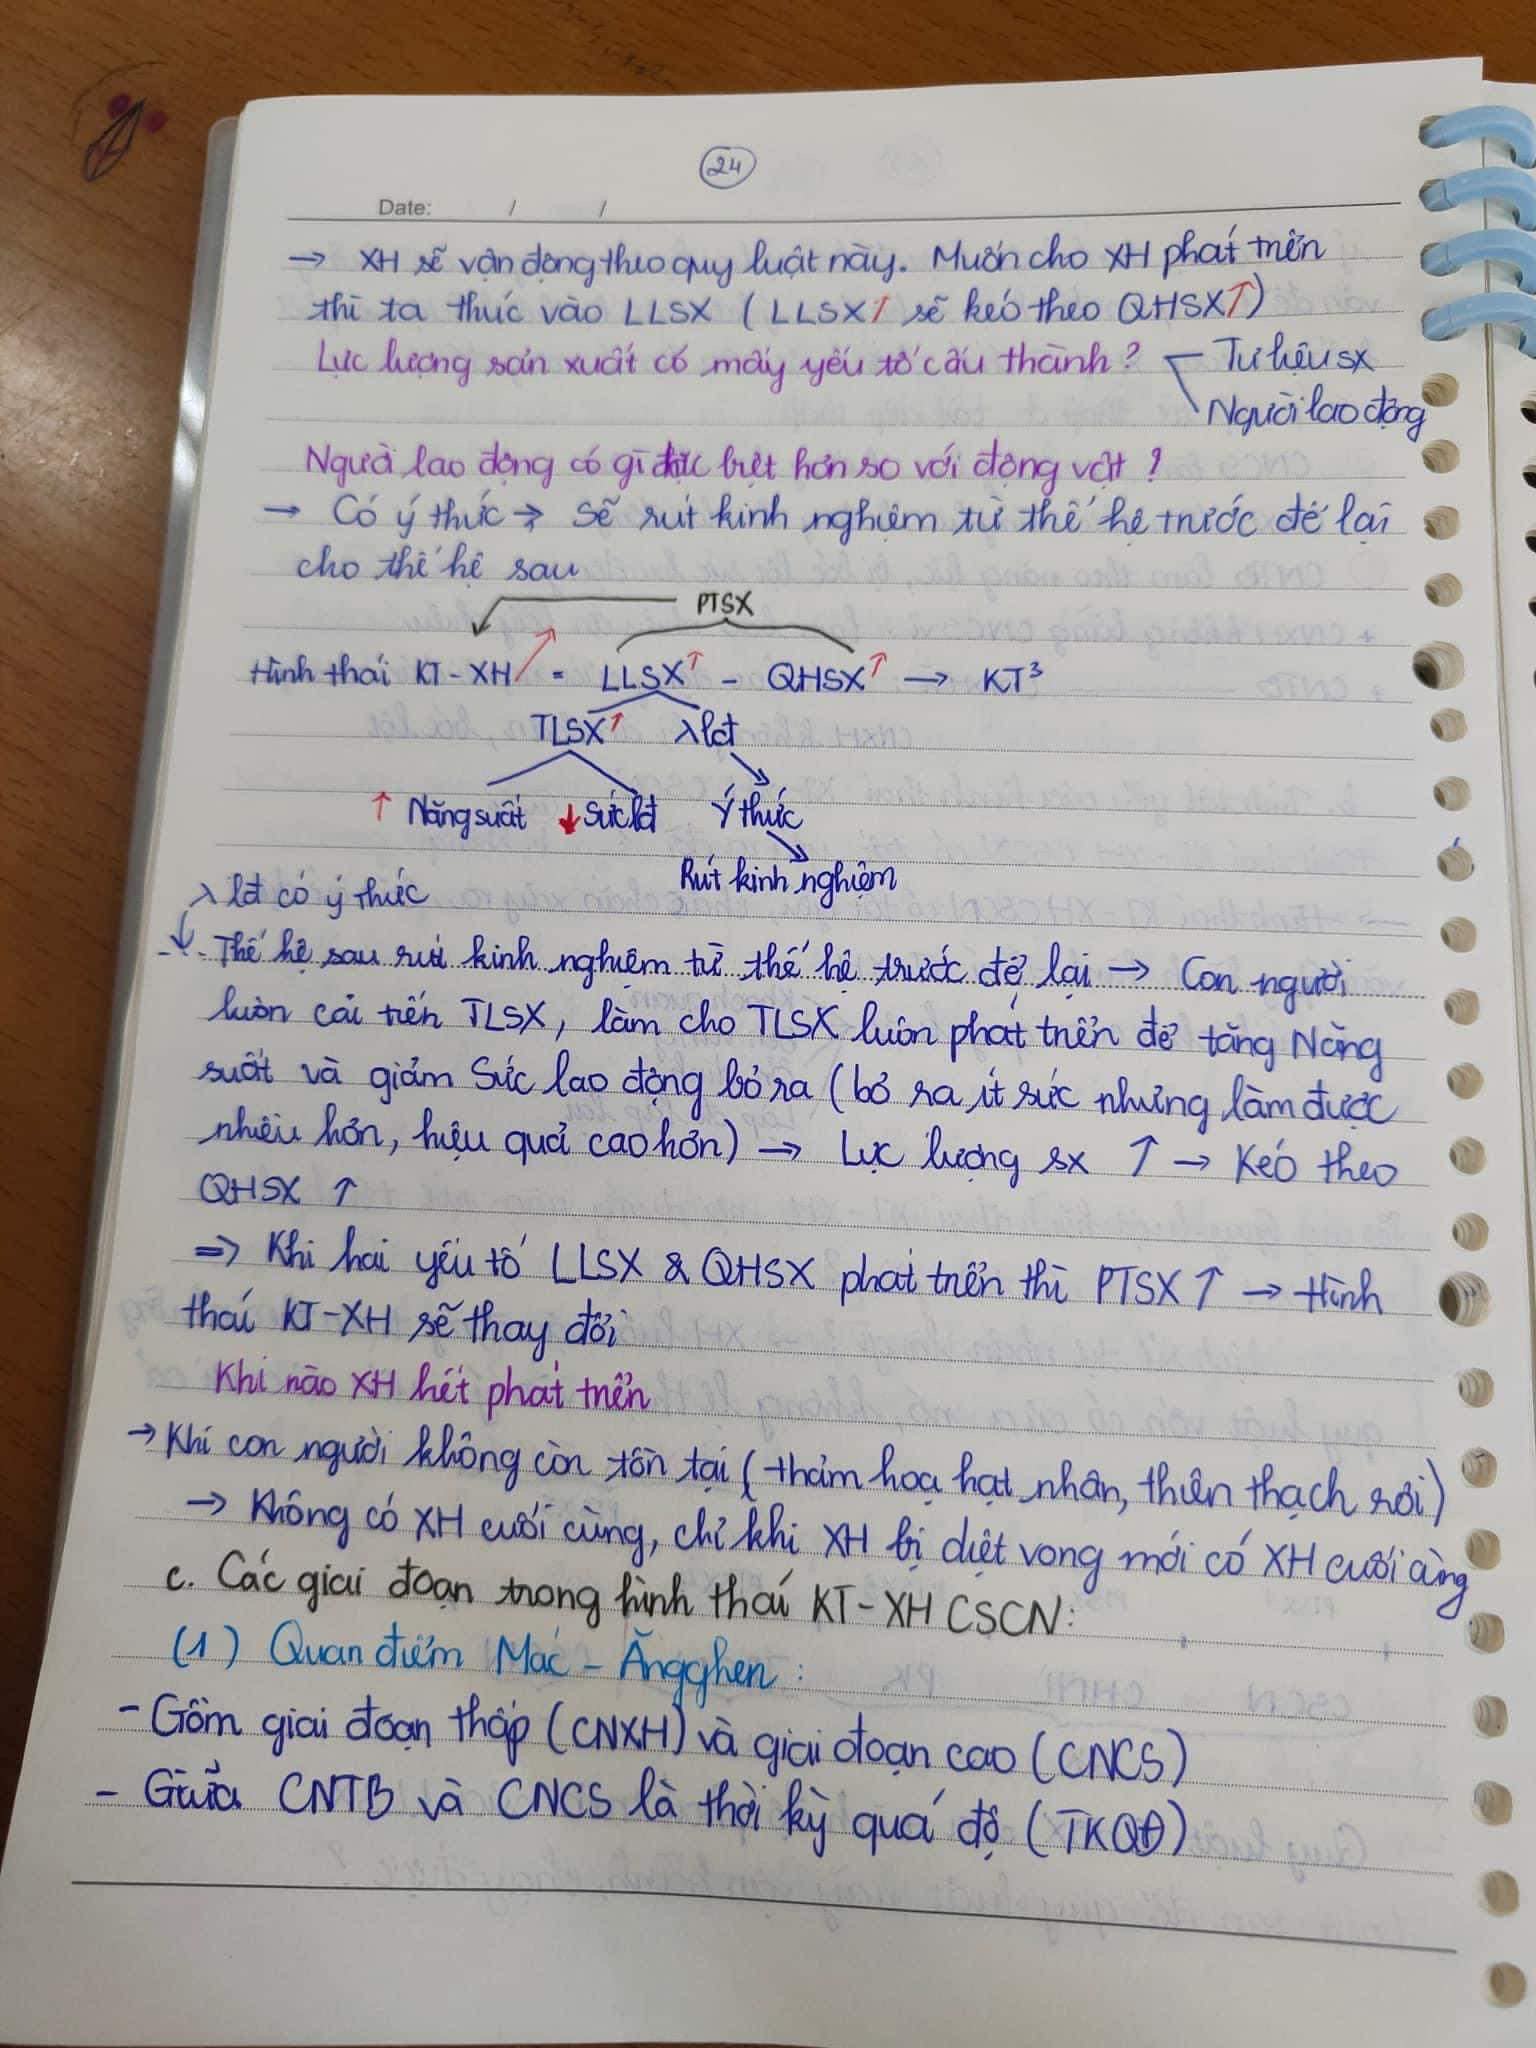 24
Date: / /
→ XH sẽ vận động theo quy luật này. Muốn cho XH phát triển
thì ta thúc vào LLSX (LLSX↑ sẽ kéo theo QHSX↑)
Lực lượng sản xuất có mấy yếu tố cấu thành? Tư liệu sx
Người lao động
Người lao động có gì đặc biệt hơn so với động vật?
→ Có ý thức → Sẽ rút kinh nghiệm từ thế hệ trước để lại
cho thế hệ sau
PTSX
Hình thái KT-XH↑ = LLSX↑ - QHSX↑ → KT³
TLSX↑ λ lđ
↑ Năng suất ↓ Sức lđ Ý thức
Rút kinh nghiệm
λ lđ có ý thức
- Thế hệ sau rút kinh nghiệm từ thế hệ trước để lại → Con người
luôn cải tiến TLSX, làm cho TLSX luôn phát triển để tăng Năng
suất và giảm Sức lao động bỏ ra (bỏ ra ít sức nhưng làm được
nhiều hơn, hiệu quả cao hơn) → Lực lượng sx ↑ → Kéo theo
QHSX ↑
⇒ Khi hai yếu tố LLSX & QHSX phát triển thì PTSX↑ → Hình
thái KT-XH sẽ thay đổi
Khi nào XH hết phát triển
→ Khi con người không còn tồn tại (thảm hoạ hạt nhân, thiên thạch rơi)
→ Không có XH cuối cùng, chỉ khi XH bị diệt vong mới có XH cuối cùng
c. Các giai đoạn trong hình thái KT-XH CSCN:
(1) Quan điểm Mác - Ăngghen:
- Gồm giai đoạn thấp (CNXH) và giai đoạn cao (CNCS)
- Giữa CNTB và CNCS là thời kỳ quá độ (TKQĐ)